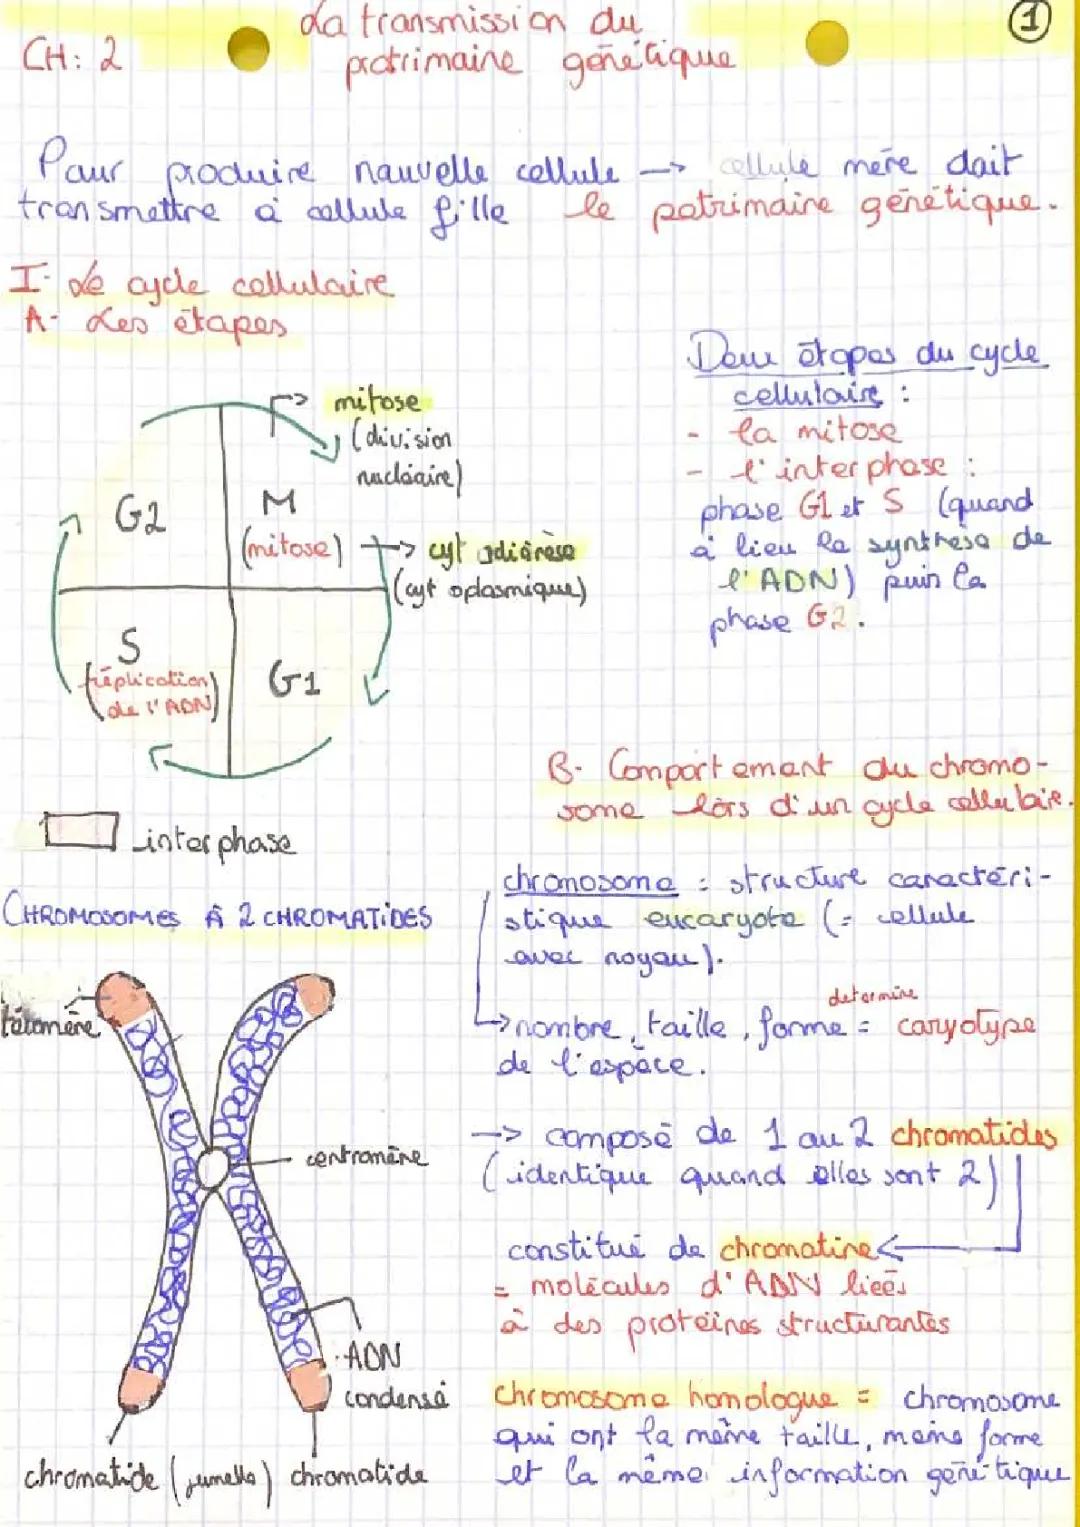 La transmission du
patrimoine génétique
CH: 2
1
Pour produire nouvelle cellule → cellule mère doit
transmettre à cellule fille le patrimoine génétique.
I- Le cycle cellulaire
A- Les étapes
mitose
(division
nucléaire)
G2
M
(mitose)
cytodiérèse
(cytoplasmique)
S
(réplication
de l'ADN)
G1
interphase
Deux étapes du cycle
cellulaire :
- la mitose
- l'interphase :
phase G1 et S (quand
à lieu la synthèse de
l'ADN) puis la
phase G2.
B- Comportement du chromo-
some lors d'un cycle cellulaire.
CHROMOSOMES À 2 CHROMATIDES
télomère
centromère
ADN
condensé
chromatide (jumelle) chromatide
chromosome : structure caractéri-
stique eucaryote (= cellule
avec noyau).
détermine
→ nombre, taille, forme = caryotype
de l'espèce.
→ composé de 1 ou 2 chromatides
(identique quand elles sont 2)
constitué de chromatine
= molécules d'ADN liées
à des protéines structurantes
Chromosome homologue = chromosome
qui ont la même taille, même forme
et la même information génétique